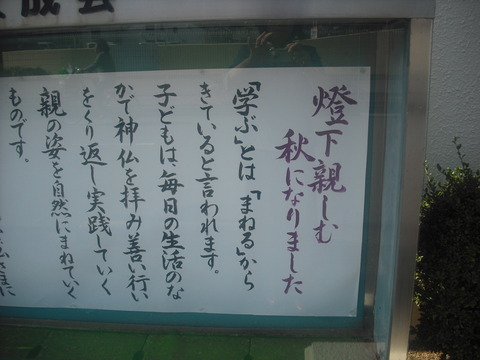 成会
燈下親しむ
秋になりました
「学ぶ」とは「まねる」から
きていると言われます。
子どもは、毎日の生活のな
かで神仏を拝み善い行い
をくり返し実践していく
親の姿を自然にまねていく
ものです。